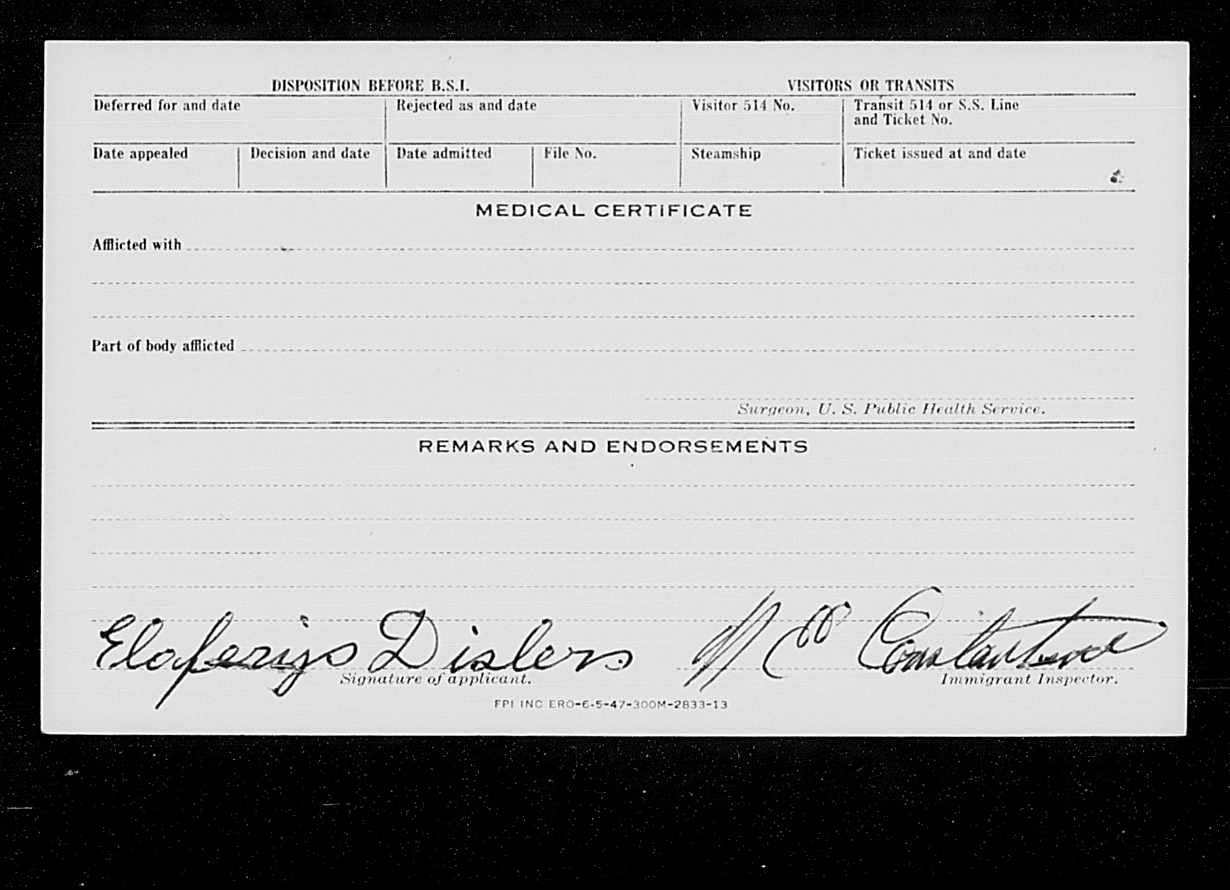 DISPOSITION BEFORE B.S.I. VISITORS OR TRANSITS
Deferred for and date Rejected as and date Visitor 514 No. Transit 514 or S.S. Line
and Ticket No.
Date appealed Decision and date Date admitted File No. Steamship Ticket issued at and date
MEDICAL CERTIFICATE
Afflicted with
Part of body afflicted
Surgeon, U. S. Public Health Service.
REMARKS AND ENDORSEMENTS
Dislers Constantine
Signature of applicant. Immigrant Inspector.
FPI INC ERO-6-5-47-300M-2833-13